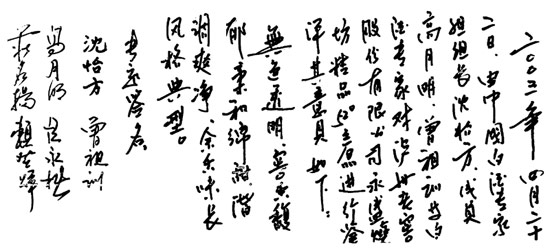 二〇〇三年四月二十
二日,由中国白酒专家
组组长沈怡方、成员
高月明、曾祖训等白
酒专家对泸州老窖
股份有限公司永盛烧
坊精品50°原进行鉴
评其意见如下:
无色透明、窖香馥
郁、柔和绵甜、谐
调爽净、余香味长
风格典型。
专家签名
沈怡方 曾祖训
高月明